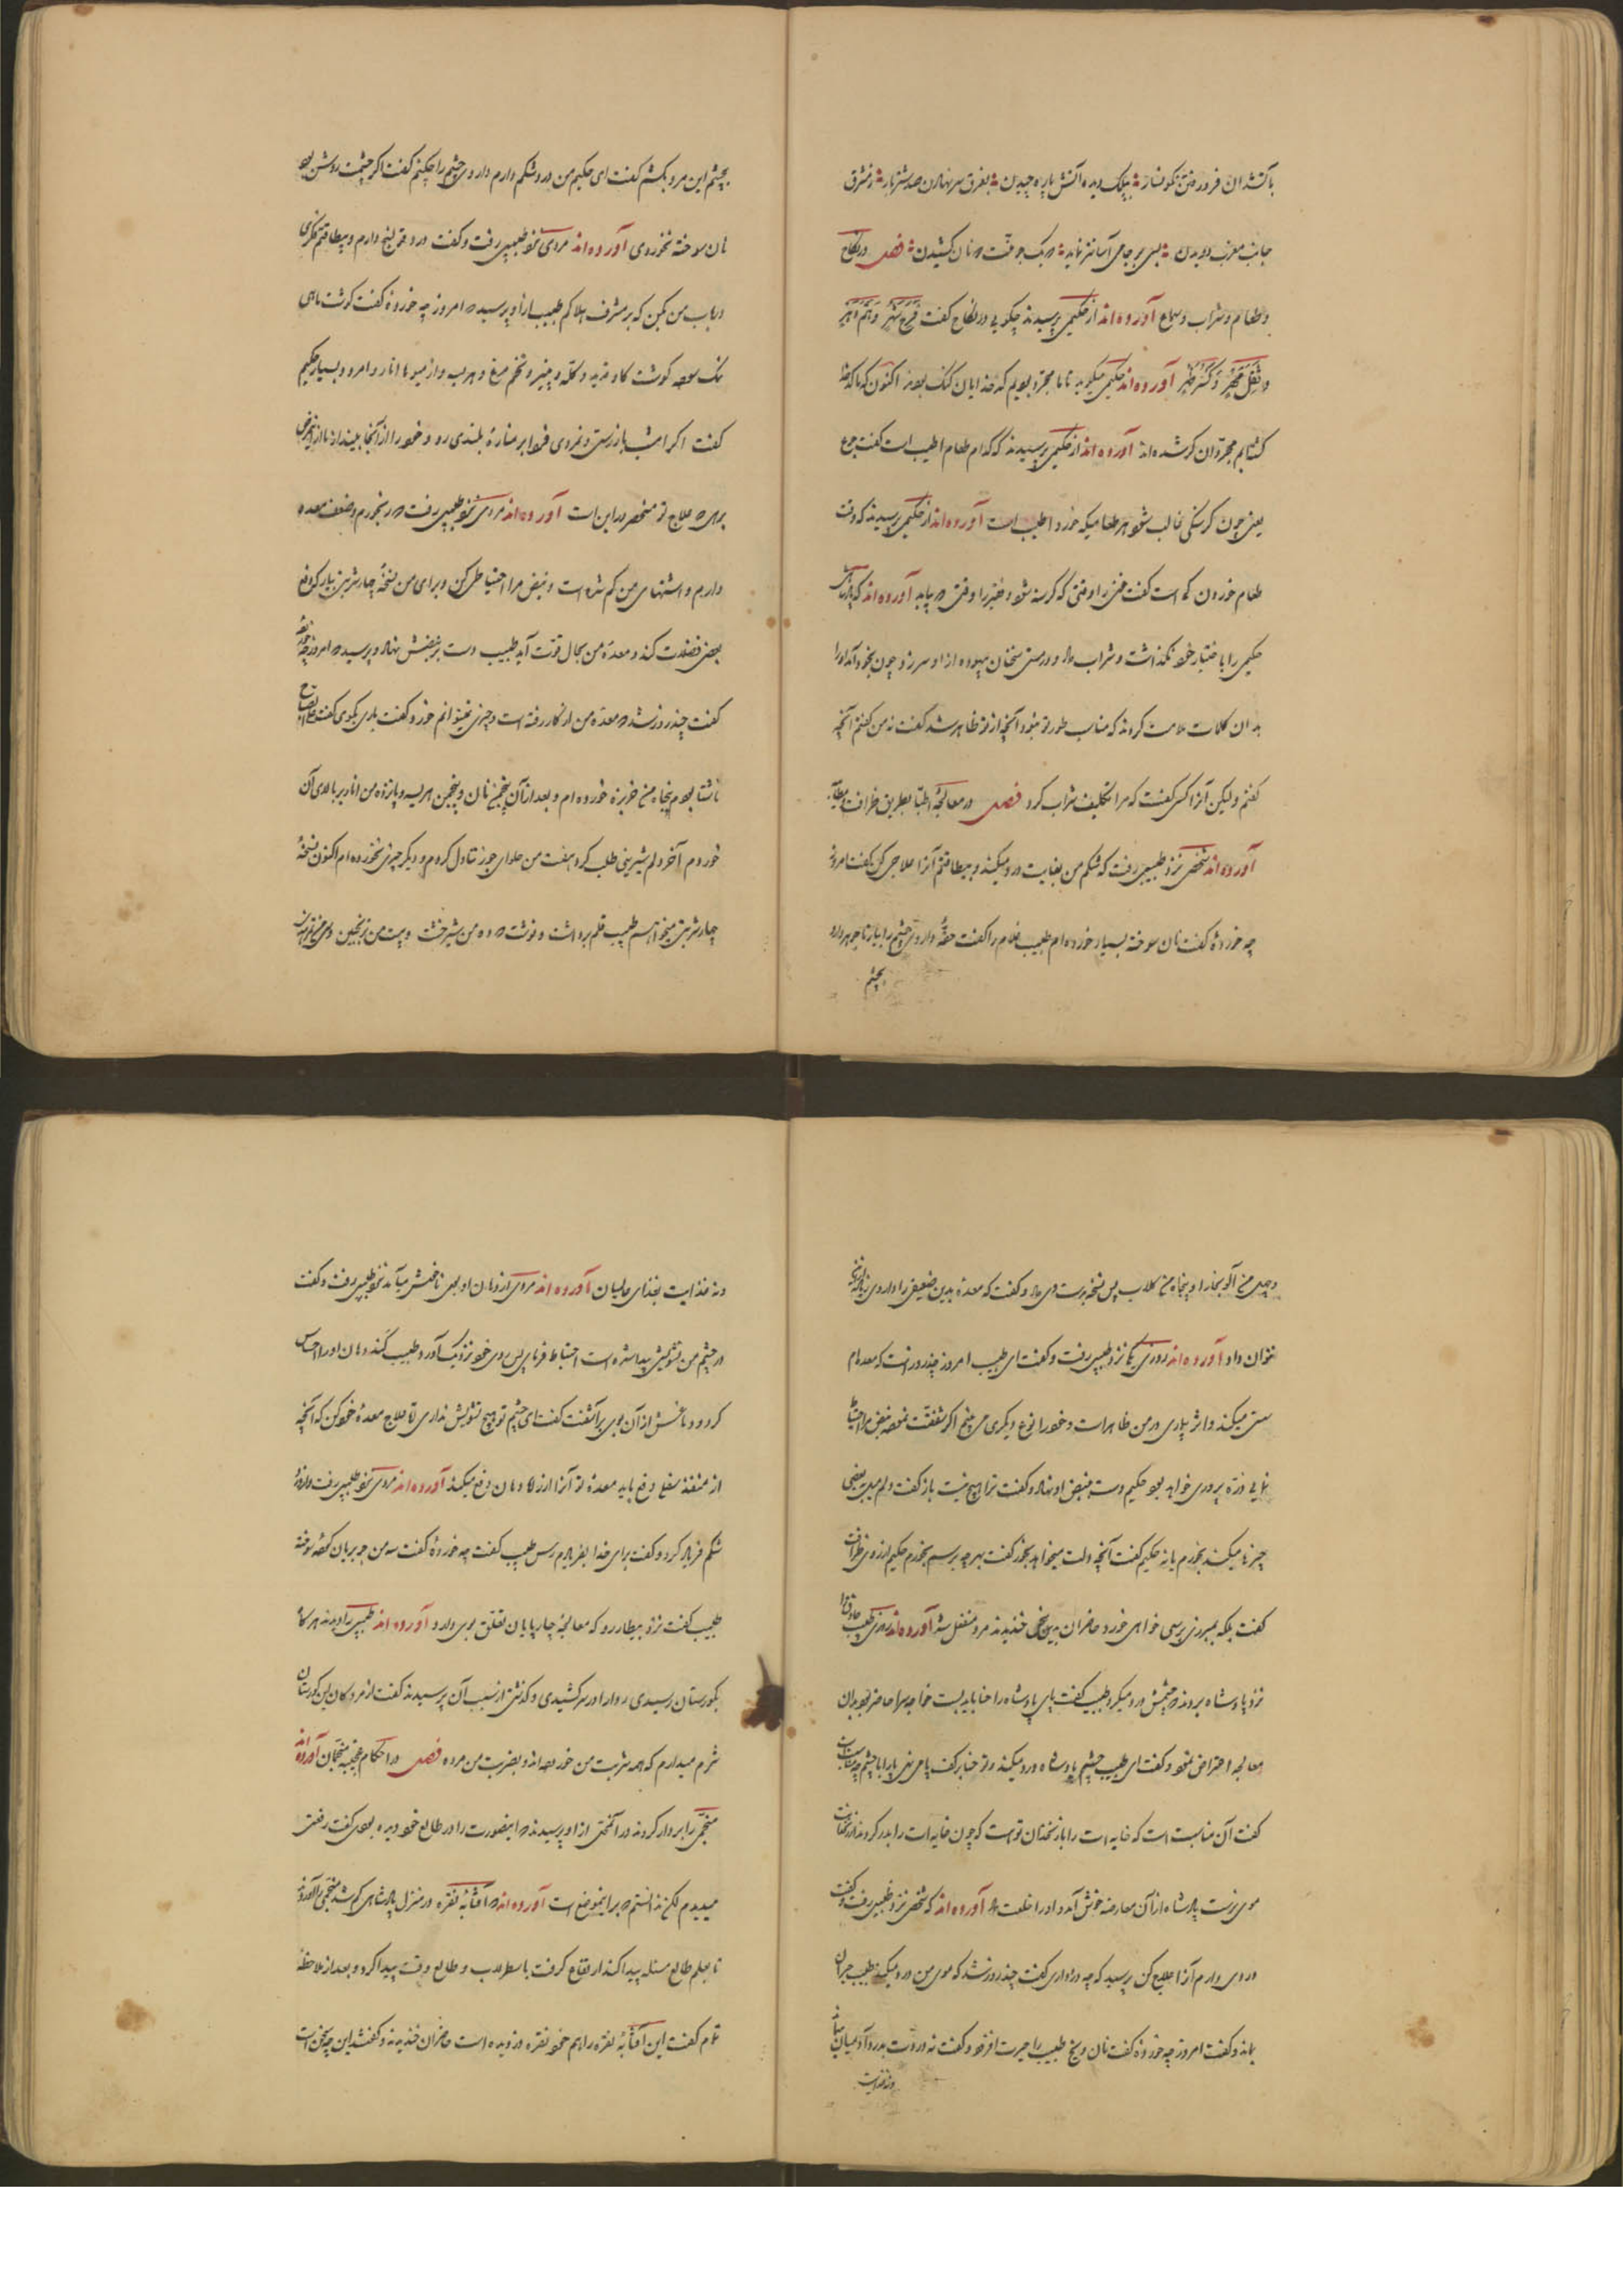 بآتشدان فرو رفتن نکونسار؛ بپلک دیده آتش پاره چیدن؛ بفرق سر نهادن صد شتر بار؛ ز مشرق
جانب مغرب دویدن؛ بسی بر جامی آسانتر نماید؛ که یک جو منت دونان کشیدن؛ فصل در نکاح
و طعام و شراب و سماع آورده‌اند از حکیمی پرسیدند چگویی در نکاح گفت فرح شهر و هم دهر
و ثقل مهر و کسر ظهر آورده‌اند حکیمی میگوید تا ما مجرد بودیم کدخدایان گنگ بودند اکنون که ما کدخدا
گشتیم مجردان کر شده‌اند آورده‌اند از حکیمی پرسیدند که کدام طعام اطیب است گفت جوع
یعنی چون گرسنگی غالب شود هر طعامیکه خورد اطیب است آورده‌اند از حکیمی پرسیدند که وقت
طعام خوردن کی است گفت غنی را وقتی که گرسنه شود و فقیر را وقتی که بیابد آورده‌اند که پادشاهی
حکیمی را باختیار خود نگذاشت و شراب داد و در مستی سخنان بیهوده از او سر زد چون بخود آمد او را
بدان کلمات ملامت کردند که مناسب طور تو نبود آنچه از تو ظاهر شد گفت نه من گفتم آنچه
گفتم ولیکن آنرا کسی گفت که مرا تکلیف شراب کرد فصل در معالجهٔ اطبا بطریق ظرافت و مطایبه
آورده‌اند شخصی نزد طبیبی رفت که شکم من بغایت درد میکند و بیطاقتم آنرا علاجی کن گفت امروز
چه خوردهٔ گفت نان سوخته بسیار خورده‌ام طبیب غلام را گفت حقهٔ داروی چشم را بیار تا جوهر دارد
بچشم
بچشم این مرد بکشم گفت ای حکیم من درد شکم دارم داروی چشم را چکنم گفت اگر چشمت روشن بود
نان سوخته نخوردی آورده‌اند مردی نزد طبیبی رفت و گفت درد قولنج دارم و بیطاقتم فکری
در باب من بکن که بر مشرف هلاکم طبیب از او پرسید که امروز چه خوردهٔ گفت گوشت ماهی
نمک سود گوشت گاو فربه و کله و پنیر و تخم مرغ و هریسه و از میوها انار و امرود بسیار حکیم
گفت اگر امشب باز رستی و نمردی فردا بر منارهٔ بلندی رو و خود را از آنجا بینداز تا از این مرض
برهی که علاج تو منحصر در این است آورده‌اند مردی نزد طبیبی رفت که رنجورم و ضعف معده
دارم و اشتهای من کم شده است و نبض مرا احتیاطی کن و برای من نسخهٔ چهار شربتی بیار که دفع
بعضی فضلات کند و معدهٔ من بحال قوت آید طبیب دست بر نبضش نهاد و پرسید که امروز چه خوردهٔ
گفت چند روز شد که معدهٔ من از کار رفته است و چیزی نمیتوانم خورد گفت باری بگوی گفت علی الصباح
ناشتا بودم پنجاه من خربزه خورده‌ام و بعد از آن پنج من نان و پنجمن هریسه و پانزده من انار بر بالای آن
خوردم آخر دلم شیرینی طلب کرد هفت من حلوای جوز تناول کردم و دیگر چیزی نخورده‌ام اکنون نسخهٔ
چهار شربتی میخواهم طبیب قلم برداشت و نوشت که ده من شیرخشت و بیست من ترنجبین و سی من تمرهندی
و چهل من آلو بخارا و پنجاه من گلاب پس نسخه بدست وی داد و گفت که معدهٔ بدین ضعیفی را داروی به از این
نتوان داد آورده‌اند روزی یکی نزد طبیبی رفت و گفت ای طبیب امروز چند روز است که معده‌ام
سستی میکند و اثر بیماری در من ظاهر است و خود را نوع دیگری می بینم اگر شفقت نموده نبض مرا احتیاط
نمایی ذره پروری خواهد بود حکیم دست بنبض او نهاد و گفت ترا هیچ نیست باز گفت دلم میل بعضی
چیزها میکند بخورم یا نه حکیم گفت آنچه دلت میخواهد بخور گفت بهر چه برسم بخورم حکیم از روی ظرافت
گفت بلکه بهر چیزی برسی خواهی خورد حاضران بدین سخن خندیدند مرد منفعل شد آورده‌اند روزی طبیب حاذقی را
نزد پادشاه بردند که چشمش درد میکرد طبیب گفت پای پادشاه را حنا باید بست خواجه سرا حاضر بود بدان
معالجه اعتراض نمود و گفت ای طبیب چشم پادشاه درد میکند و تو حنا بر کف پا می نهی پا را با چشم چه مناسبت
گفت آن مناسبت است که خایه‌ات را با زنخدان تو است که چون خایه‌ات را بدر کردند از زنخدانت
موی نرست پادشاه از آن معارضه خوش آمد و او را خلعت داد آورده‌اند که شخصی نزد طبیبی رفت و گفت
دردی دارم آنرا علاج کن پرسید که چه درد داری گفت چند روز شد که موی من درد میکند طبیب حیران
بماند و گفت امروز چه خوردهٔ گفت نان و یخ طبیب را حیرت افزود و گفت نه دردت بدرد آدمیان ماند
و نه غذایت
و نه غذایت بغذای عالمیان آورده‌اند مردی از دهان او بوی ناخوش میآمد نزد طبیبی رفت و گفت
در چشم من تشویشی پیدا شده است احتیاط فرمای پس روی خود نزدیک آورد و طبیب گند دهان او را احساس
کرد و دماغش از آن بوی برآشفت گفت ای چشم تو هیچ تشویش نداری تا علاج معدهٔ خود کن که آنچه
از منفذ سفلی دفع باید معدهٔ تو آنرا از راه دهان دفع میکند آورده‌اند مردی نزد طبیبی رفت و از درد
شکم فریاد کرد و گفت برای خدا بفریادم رس طبیب گفت چه خوردهٔ گفت سه من جو بریان کرده سوخته
طبیب گفت نزد بیطار رو که معالجهٔ چارپایان تعلق بوی دارد آورده‌اند طبیبی را دیدند هر گاه
بگورستان رسیدی ردا را در سر کشیدی و گذشتی از سبب آن پرسیدند گفت از مردگان این گورستان
شرم میدارم که همه شربت من خورده‌اند و بضربت من مرده فصل در احکام عجیبهٔ منجمان آورده‌اند
منجمی را بر دار کردند در آنحین از او پرسیدند که اینصورت را در طالع خود دیده بودی گفت رفعتی
میدیدم لیکن ندانستم که بر اینموضع است آورده‌اند که آفتابهٔ نقره در منزل پادشاهی گم شد منجمی را آوردند
تا بعلم طالع مسئله پیدا کند ارتفاع گرفت باسطرلاب و طالع وقت پیدا کرد و بعد از ملاحظهٔ
تمام گفت این آفتابهٔ نقره را هم خود نقره دزدیده است حاضران خندیدند و گفتند این چه سخن است